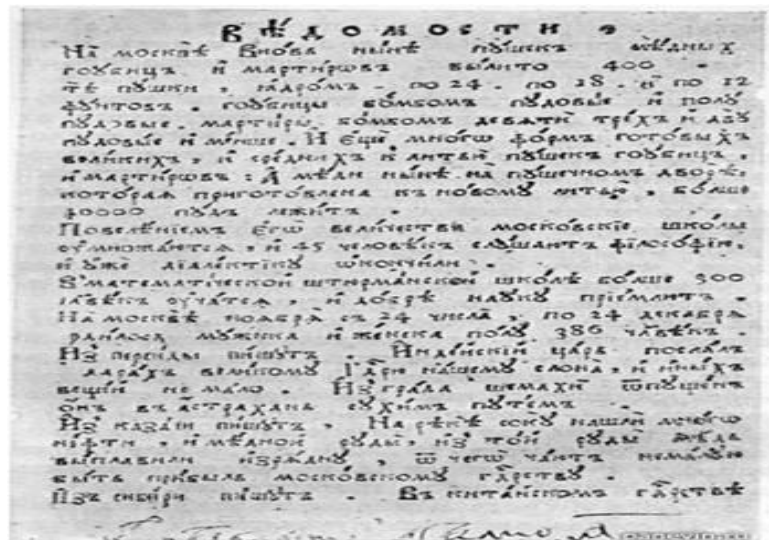 ВѢДОМОСТИ
На москвѣ вновь нынѣ пушекъ мѣдныхъ
гоубицъ и мартировъ вылито 400 .
тѣ пушки , ядромъ . по 24 . по 18 . и по 12
фунтовъ . гоубицы бомбомъ пудовые и полу
пудовые . мартиры бомбомъ девяти трехъ и двѹ
пудовые и менше . И еще многѡ формъ готовыхъ
великихъ , и среднихъ к литью пушекъ гоубицъ ,
и мартирѡвъ : А мѣди нынѣ на пушечномъ дворѣ ,
которая приготовлена къ новому литью , болше
40000 пудъ лежитъ .
Повелѣніемъ егѡ величества московскіе школы
оумножаются , и 45 человѣкъ слушаютъ філософію ,
и уже діалектіку ѡкончили .
В математической штюрманской школѣ болше 300
члвѣкъ оучатся , и добрѣ науку пріемлютъ .
На москвѣ ноября съ 24 числа , по 24 декабря
родилося мужеска и женска полу 386 члвѣкъ .
Из персиды пишутъ . Индѣйскій царь послалъ
в дарахъ великому Гдрю нашему слона , и иныхъ
вещей не мало . Из града шемахи ѿпущенъ
онъ въ астрахань сухимъ путемъ .
Из казани пишутъ . На рѣкѣ соку нашли многѡ
нефти , и мѣдной руды , из той руды мѣдь
выплавили изрядну , ѿ чегѡ чаютъ немалую
быть прибыль московскому гдрству .
Изъ сибири пишутъ . Въ китайскомъ гдрствѣ